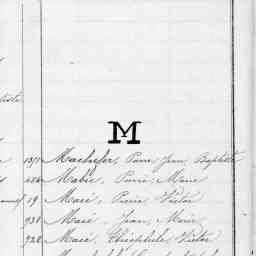 M
1371 Machefer, Pierre Jean Baptiste
424 Mabie, Pierre Marie
19 Macé, Pierre Victor
938 Macé, Jean Marie
928 Macé, Théophile Victor